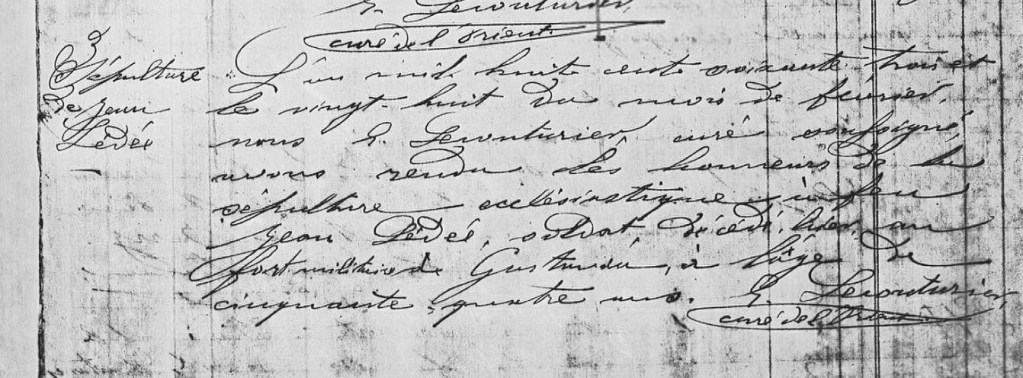 E. Lecouturier,
curé de l'Orient.
3
Sépulture
de jean
Lédée
L'an mil huit cents soixante-trois et
le vingt-huit du mois de février,
nous E. Lecouturier, curé soussigné,
avons rendu les honneurs de la
sépulture ecclésiastique à feu
Jean Lédée, soldat, décédé, hier, au
fort militaire de Gustavia, à l'âge de
cinquante, quatre ans. E. Lecouturier,
curé de l'Orient